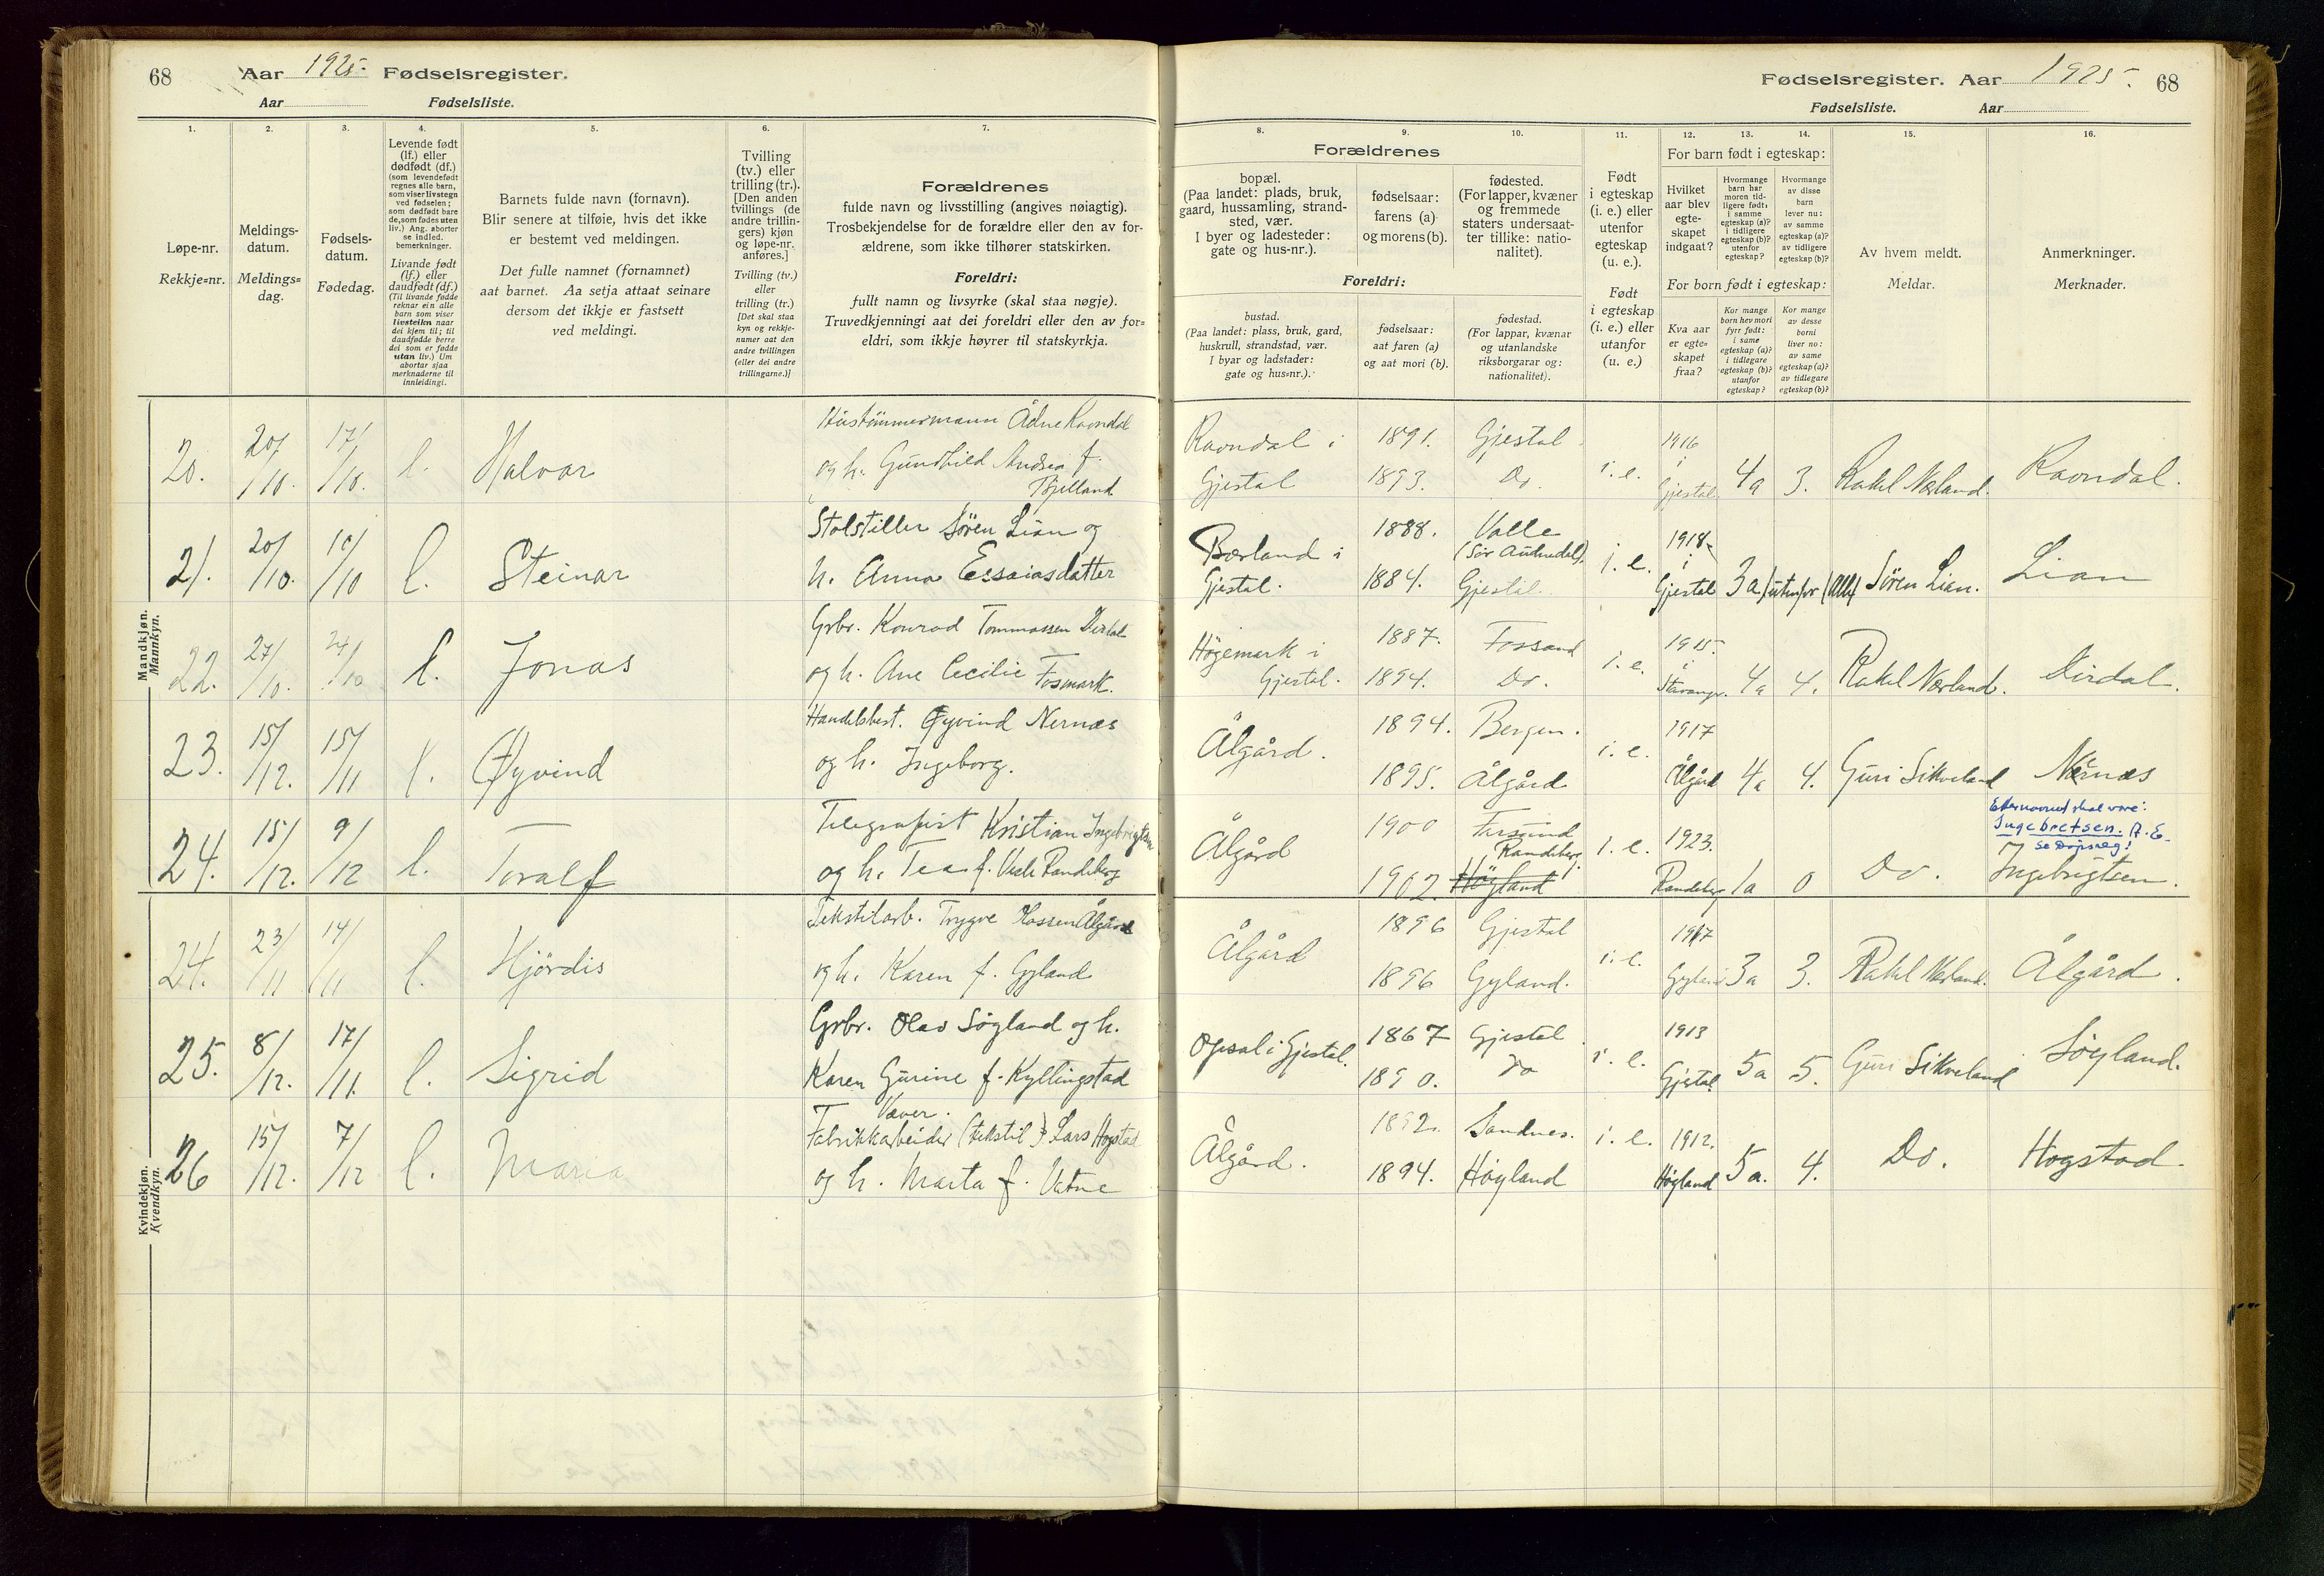 68 Aar 1925. Fødselsregister.
Aar Fødselsliste.
Fødselsregister. Aar 1925. 68
Fødselsliste. Aar
1. 2. 3. 4. 5. 6. 7.
Løpe-nr.
Rekkje=nr.
Meldings-
datum.
Meldings=
dag.
Fødsels-
datum.
Fødedag.
Levende født
(lf.) eller
dødfødt (df.)
(som levendefødt
regnes alle barn,
som viser livstegn
ved fødselen;
som dødfødt bare
de, som fødes uten
liv.) Ang. aborter
se indled.
bemerkninger.
Livande født
(lf.) eller
daudfødt (df.)
(Til livande fødde
reknar ein alle
barn som viser
livsteikn naar
dei kjem til; til
daudfødde berre
dei som er fødde
utan liv.) Um
abortar sjaa
merknaderne til
innleidingi.
Barnets fulde navn (fornavn).
Blir senere at tilføie, hvis det ikke
er bestemt ved meldingen.
Det fulle namnet (fornamnet)
aat barnet. Aa setja attaat seinare
dersom det ikkje er fastsett
ved meldingi.
Tvilling
(tv.) eller
trilling (tr.).
[Den anden
tvillings (de
andre trillin-
gers) kjøn
og løpe-nr.
anføres.]
Tvilling (tv.)
eller
trilling (tr.)
[Det skal staa
kyn og rekkje-
numer aat den
andre tvillingen
(eller dei andre
trillingarne.)]
Forældrenes
fulde navn og livsstilling (angives nøiagtig).
Trosbekjendelse for de forældre eller den av for-
ældrene, som ikke tilhører statskirken.
Foreldri:
fullt namn og livsyrke (skal staa nøgje).
Truvedkjenningi aat dei foreldri eller den av for=
eldri, som ikkje høyrer til statskyrkja.
8. 9. 10. 11. 12. 13. 14. 15. 16.
Forældrenes
bopæl.
(Paa landet: plads, bruk,
gaard, hussamling, strand-
sted, vær.
I byer og ladesteder:
gate og hus-nr.).
fødselsaar:
farens (a)
og morens (b).
fødested.
(For lapper, kvæner
og fremmede
staters undersaat-
ter tillike: natio-
nalitet).
Foreldri:
bustad.
(Paa landet: plass, bruk, gard,
huskrull, strandstad, vær.
I byar og ladstader:
gate og hus=nr.).
fødselsaar:
aat faren (a)
og aat mori (b).
fødestad.
(For lappar, kvænar
og utanlandske
riksborgarar og:
nationalitet).
Født
i egteskap
(i. e.) eller
utenfor
egteskap
(u. e.).
Født
i egteskap
(i. e.) eller
utanfor
(u. e.)
For barn født i egteskap:
Hvilket
aar blev
egte-
skapet
indgaat?
Hvormange
barn har
moren tid-
ligere født:
i samme
egteskap (a)?
i tidligere
egteskap (b)?
utenfor
egteskap?
Hvormange
av disse
barn
lever nu:
av samme
egteskap (a)?
av tidligere
egteskap (b)?
For born født i egteskap:
Kva aar
er egte=
skapet
fraa?
Kor mange
born hev mori
fyrr født:
i same
egteskap (a)?
i tidlegare
egteskap (b)?
utanfor
egteskap?
Kor mange
av desse
borni
liver no:
av same
egteskap (a)?
av tidlegare
egteskap (b)?
Av hvem meldt.
Meldar.
Anmerkninger.
Merknader.
Mandkjøn.
Mannkyn.
20. 20/10. 17/10. l. Halvar
Hustømmermann Ådne Ravndal
og h. Gundhild Andrea f.
Bjelland
Ravndal i Gjestal 1891. 1893. Gjestal Do. i. e. 1916 i Gjestal 4a 3. Rakel Næland. Ravndal.
21. 20/10. 10/10 l. Steinar
Stolstiller Sören Lian og
h. Anna Essaiasdatter
Bærland i Gjestal. 1888. 1884. Valle (Sør Audnedal). Gjestal. i. e. 1918 i Gjestal 3a 1 utenfor (alle) Søren Lian. Lian
22. 27/10. 24/10 l. Jonas
Grbr. Konrad Tommassen Dirdal
og h. Ane Cecilie Fosmark.
Högemark i Gjestal. 1887. 1894. Fossand Do. i. e. 1915. i Stavanger. 4a 4. Rakel Næland. Dirdal.
23. 15/12. 15/11 l. Øyvind
Handelsbest. Øyvind Nernæs
og h. Ingeborg.
Ålgård. 1894. 1895. Bergen. Ålgård i. e. 1917 Ålgård 4a 4. Guri Sikveland Nernæs
24. 15/12. 9/12 l. Toralf
Telegrafist Kristian Ingebrigtsen
og h. Tea f. Vesle Randeberg
Ålgård 1900 1902. Farsund Randeberg. Högland i. e. 1923. Randeberg 1a 0 Do.
Etternavnet skal være:
Ingebretsen. A. E.
Se Dåpsreg!
Ingebrigtsen.
Kvindekjøn.
Kvendkyn.
24. 23/11 14/11 l. Hjördis
Tekstilarb. Trygve Hassen Ålgård
og h. Karen f. Gyland
Ålgård 1896 1896 Gjestal Gyland. i. e. 1917 Gyland 3a 3. Rakel Næland. Ålgård.
25. 8/12. 17/11. l. Sigrid
Grbr. Olav Søyland og h.
Karen Gurine f. Kyllingstad
Opsal i Gjestal. 1867 1890. Gjestal Do i. e. 1913 Gjestal 5a 5. Guri Sikveland Søyland.
26 15/12. 7/12 l. Maria
Væver.
Fabrikkarbeider (tekstil) Lars Hogstad
og h. Marta f. Vatne
Ålgård. 1892. 1894. Sandnes. Høyland i. e. 1912. Høyland 5a. 4. Do. Hogstad.